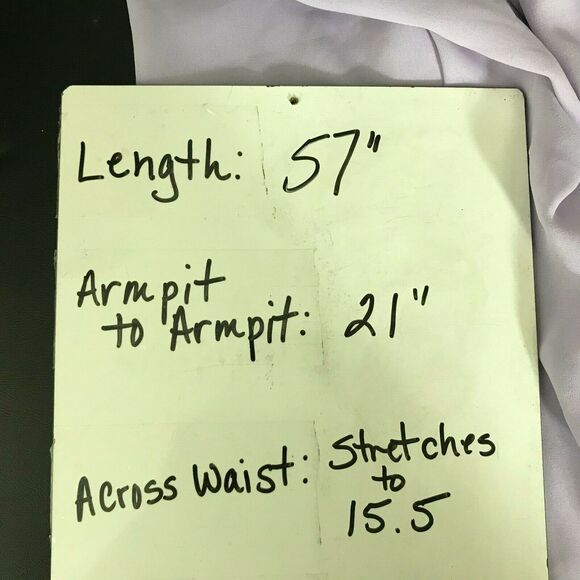 Length: 57"
Armpit
to Armpit: 21"
Across Waist: Stretches
to
15.5